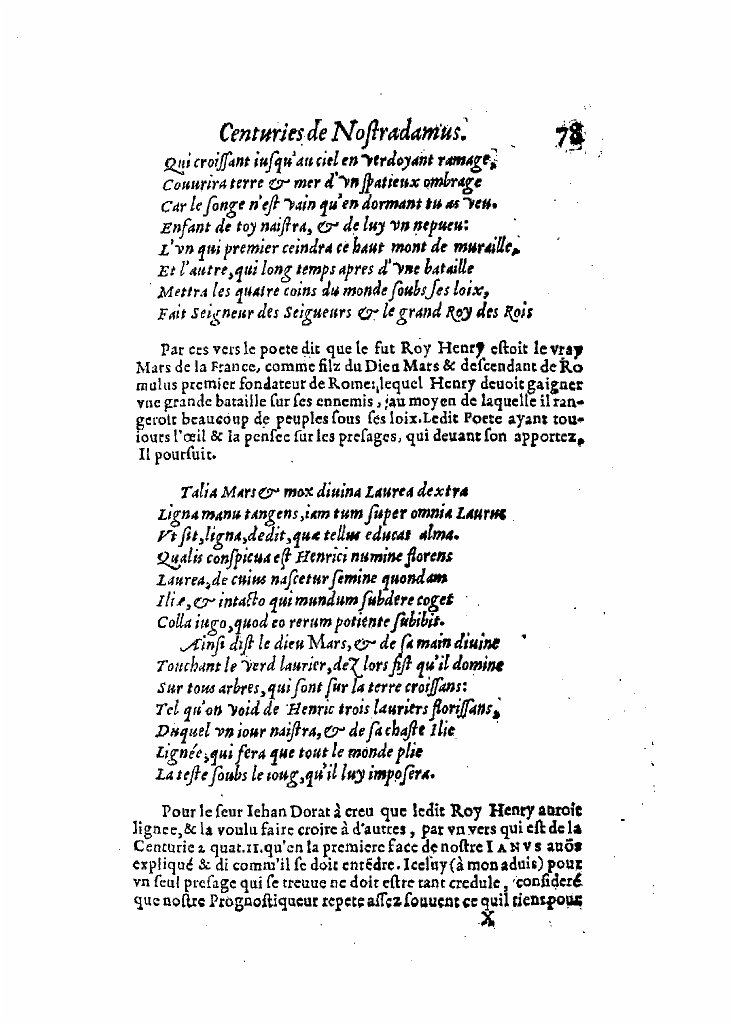 Centuries de Noſtradamus. 78
Qui croiſſant iuſqu'au ciel en verdoyant ramage,
Couurira terre & mer d'vn ſpatieux ombrage
Car le ſonge n'eſt vain qu'en dormant tu as veu.
Enfant de toy naiſtra, & de luy vn nepueu:
L'vn qui premier ceindra ce haut mont de muraille,
Et l'autre, qui long temps apres d'vne bataille
Mettra les quatre coins du monde ſoubs ſes loix,
Fait Seigneur des Seigueurs & le grand Roy des Rois
Par ces vers le poete dit que le fut Roy Henry eſtoit le vray
Mars de la France, comme filz du Dieu Mars & deſcendant de Ro
mulus premier fondateur de Rome:, lequel Henry deuoit gaigner
vne grande bataille ſur ſes ennemis, au moyen de laquelle il ran-
geroit beaucoup de peuples ſous ſes loix. Ledit Poete ayant tou-
iours l'œil & la penſee ſur les preſages, qui deuant ſon apportez,
Il pourſuit.
Talia Mars & mox diuina Laurea dextra
Ligna manu tangens, iam tum ſuper omnia Laurus
Vt ſit, ligna, dedit, quæ tellus educat alma.
Qualis conſpicua eſt Henrici numine florens
Laurea, de cuius naſcetur ſemine quondam
Iliæ, & intacto qui mundum ſubdere coget
Colla iugo, quod eo rerum potiente ſubibit.
Ainſi diſt le dieu Mars, & de ſa main diuine
Touchant le verd laurier, dez lors fiſt qu'il domine
Sur tous arbres, qui ſont ſur la terre croiſſans:
Tel qu'on void de Henric trois lauriers floriſſans,
Duquel vn iour naiſtra, & de ſa chaſte Ilie
Lignée, qui fera que tout le monde plie
La teſte ſoubs le ioug, qu'il luy impoſera.
Pour le ſeur Iehan Dorat à creu que ledit Roy Henry auroit
lignee, & la voulu faire croire à d'autres, par vn vers qui eſt de la
Centurie 2 quat.11. qu'en la premiere face de noſtre IANVS auōs
expliqué & di comm'il ſe doit entēdre. Iceluy (à mon aduis) pour
vn ſeul preſage qui ſe treuue ne doit eſtre tant credule, conſideré
que noſtre Prognoſtiqueur repete aſſez ſouuent ce quil tient pour
X